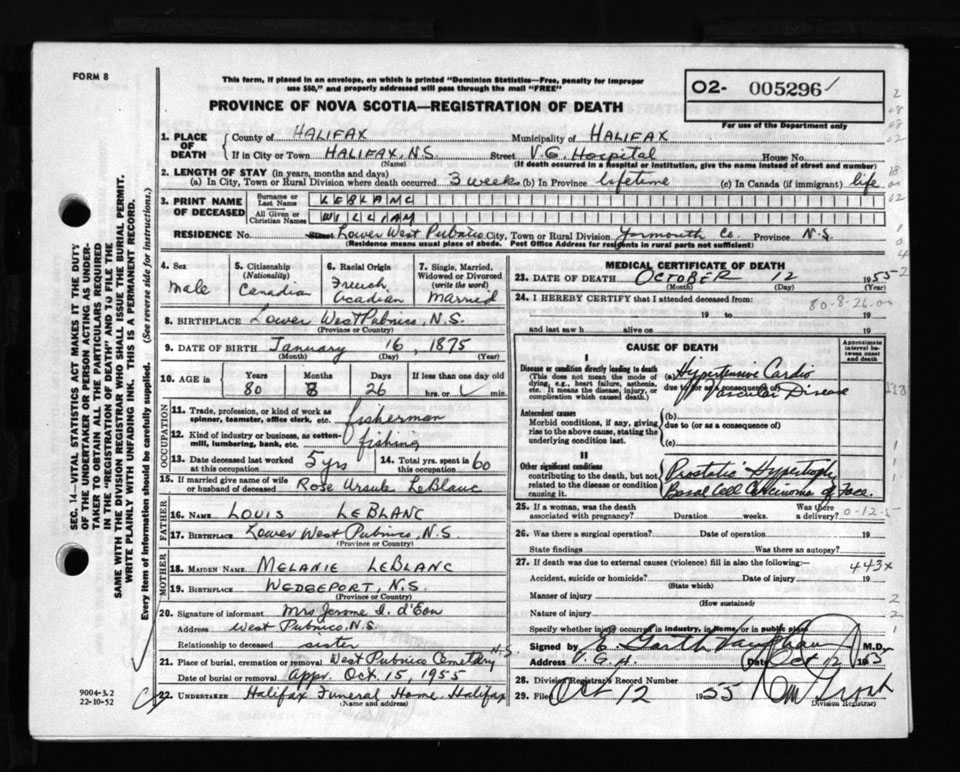 FORM 8
This form, if placed in an envelope, on which is printed "Dominion Statistics—Free, penalty for improper
use $50," and properly addressed will pass through the mail "FREE"
02- 005296
For use of the Department only
PROVINCE OF NOVA SCOTIA—REGISTRATION OF DEATH
1. PLACE OF DEATH County of HALIFAX Municipality of HALIFAX
If in City or Town HALIFAX, N.S. Street V.G. Hospital House No.
(Name) (If death occurred in a hospital or institution, give the name instead of street and number)
2. LENGTH OF STAY (in years, months and days)
(a) In City, Town or Rural Division where death occurred 3 weeks (b) In Province lifetime (c) In Canada (if immigrant) life
3. PRINT NAME OF DECEASED Surname or Last Name LEBLANC
All Given or Christian Names WILLIAM
RESIDENCE No. Street Lower West Pubnico City, Town or Rural Division Yarmouth Co. Province N.S.
(Residence means usual place of abode. Post Office Address for residents in rural parts not sufficient)
4. Sex Male
5. Citizenship (Nationality) Canadian
6. Racial Origin French Acadian
7. Single, Married, Widowed or Divorced (write the word) Married
8. BIRTHPLACE Lower West Pubnico, N.S.
(Province or Country)
9. DATE OF BIRTH January 16, 1875
(Month) (Day) (Year)
10. AGE in Years Months Days If less than one day old
80 8 26 hrs. or min.
OCCUPATION
11. Trade, profession, or kind of work as spinner, teamster, office clerk, etc. fisherman
12. Kind of industry or business, as cotten-mill, lumbering, bank, etc. fishing
13. Date deceased last worked at this occupation 5 yrs 14. Total yrs. spent in this occupation 60
15. If married give name of wife or husband of deceased Rose Ursula LeBlanc
FATHER
16. NAME LOUIS LEBLANC
17. BIRTHPLACE Lower West Pubnico, N.S
(Province or Country)
MOTHER
18. MAIDEN NAME MELANIE LEBLANC
19. BIRTHPLACE WEDGEPORT, N.S.
(Province or Country)
20. Signature of informant Mrs Jerome I. d'Eon
Address West Pubnico, N.S.
Relationship to deceased sister
21. Place of burial, cremation or removal West Pubnico Cemetary N.S.
Date of burial or removal appr. Oct. 15, 1955
22. UNDERTAKER Halifax Funeral Home, Halifax
(Name and address)
MEDICAL CERTIFICATE OF DEATH
23. DATE OF DEATH OCTOBER 12 1955
(Month) (Day) (Year)
24. I HEREBY CERTIFY that I attended deceased from:
80-8-26.00
19 to 19
and last saw h alive on 19
CAUSE OF DEATH
Approximate interval between onset and death
I
Disease or condition directly leading to death
(This does not mean the mode of dying, e.g., heart failure, asthenia, etc. It means the disease, injury, or complication which caused death.)
(a) Hypertensive Cardio Vascular Disease
due to (or as a consequence of)
Antecedent causes
Morbid conditions, if any, giving rise to the above cause, stating the underlying condition last.
(b)
due to (or as a consequence of)
(c)
II
Other significant conditions
contributing to the death, but not related to the disease or condition causing it.
Prostatic Hypertrophy
Basal Cell Carcinoma of Face.
25. If a woman, was the death associated with pregnancy? Duration weeks. Was there a delivery?
26. Was there a surgical operation? Date of operation 19
State findings Was there an autopsy?
27. If death was due to external causes (violence) fill in also the following:— 443x
Accident, suicide or homicide? Date of injury 19
(State which)
Manner of injury
(How sustained)
Nature of injury
Specify whether injury occurred in industry, in home, or in public place
Signed by E. Garth Vaughan M.D.
Address V.G.H. Date Oct 12 1955
28. Division Registrar's Record Number
29. Filed Oct 12 1955
Division Registrar
SEC. 14—VITAL STATISTICS ACT MAKES IT THE DUTY
OF THE UNDERTAKER OR PERSON ACTING AS UNDER-
TAKER TO OBTAIN ALL THE PARTICULARS REQUIRED
IN THE "REGISTRATION OF DEATH" AND TO FILE THE
SAME WITH THE DIVISION REGISTRAR WHO SHALL ISSUE THE BURIAL PERMIT.
WRITE PLAINLY WITH UNFADING INK. THIS IS A PERMANENT RECORD.
Every item of information should be carefully supplied. (See reverse side for instructions.)
9004-3.2
22-10-52